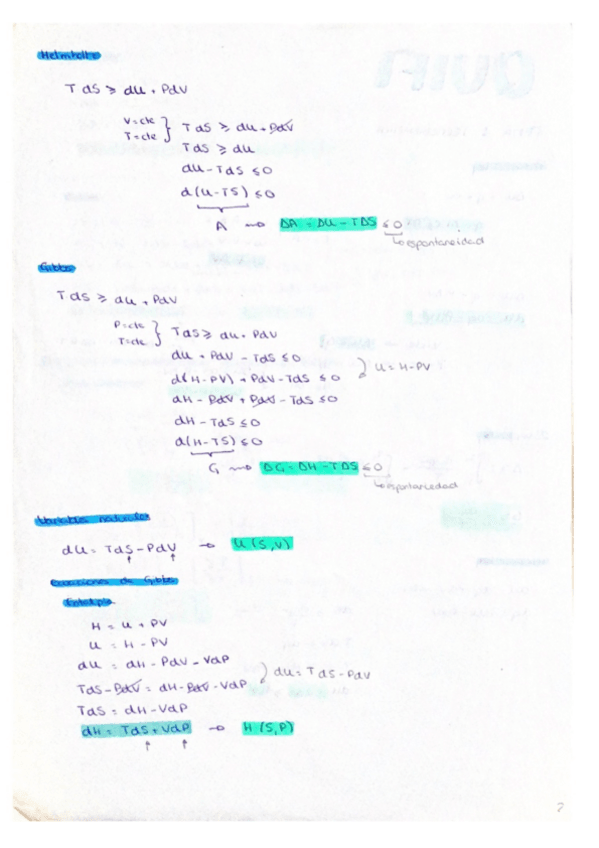 Helmholtz
TdS ≥ du + PdV
V=cte } TdS ≥ du + PdV
T=cte
TdS ≥ du
du - TdS ≤ 0
d(U-TS) ≤ 0
A → ΔA = ΔU - TΔS ≤ 0
↳ espontaneidad
Gibbs
TdS ≥ du + PdV
P=cte } TdS ≥ du + PdV
T=cte
du + PdV - TdS ≤ 0
d(H-PV) + PdV - TdS ≤ 0 ) U = H-PV
dH - PdV + PdV - TdS ≤ 0
dH - TdS ≤ 0
d(H-TS) ≤ 0
G → ΔG = ΔH - TΔS ≤ 0
↳ espontaneidad
Variables naturales
du = TdS - PdV → U(S,V)
Ecuaciones de Gibbs
Entalpía
H = U + PV
U = H - PV
du = dH - PdV - VdP
TdS - PdV = dH - PdV - VdP ) du = TdS - PdV
TdS = dH - VdP
dH = TdS + VdP → H(S,P)
7